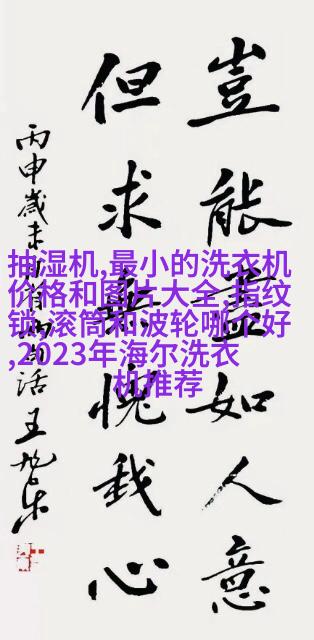 豈能盡如人意
但求無愧我心
丙申歲末
活王旭东
抽湿机,最小的洗衣机
价格和图片大全,指纹
锁,滚筒和波轮哪个好
,2023年海尔洗衣
机推荐